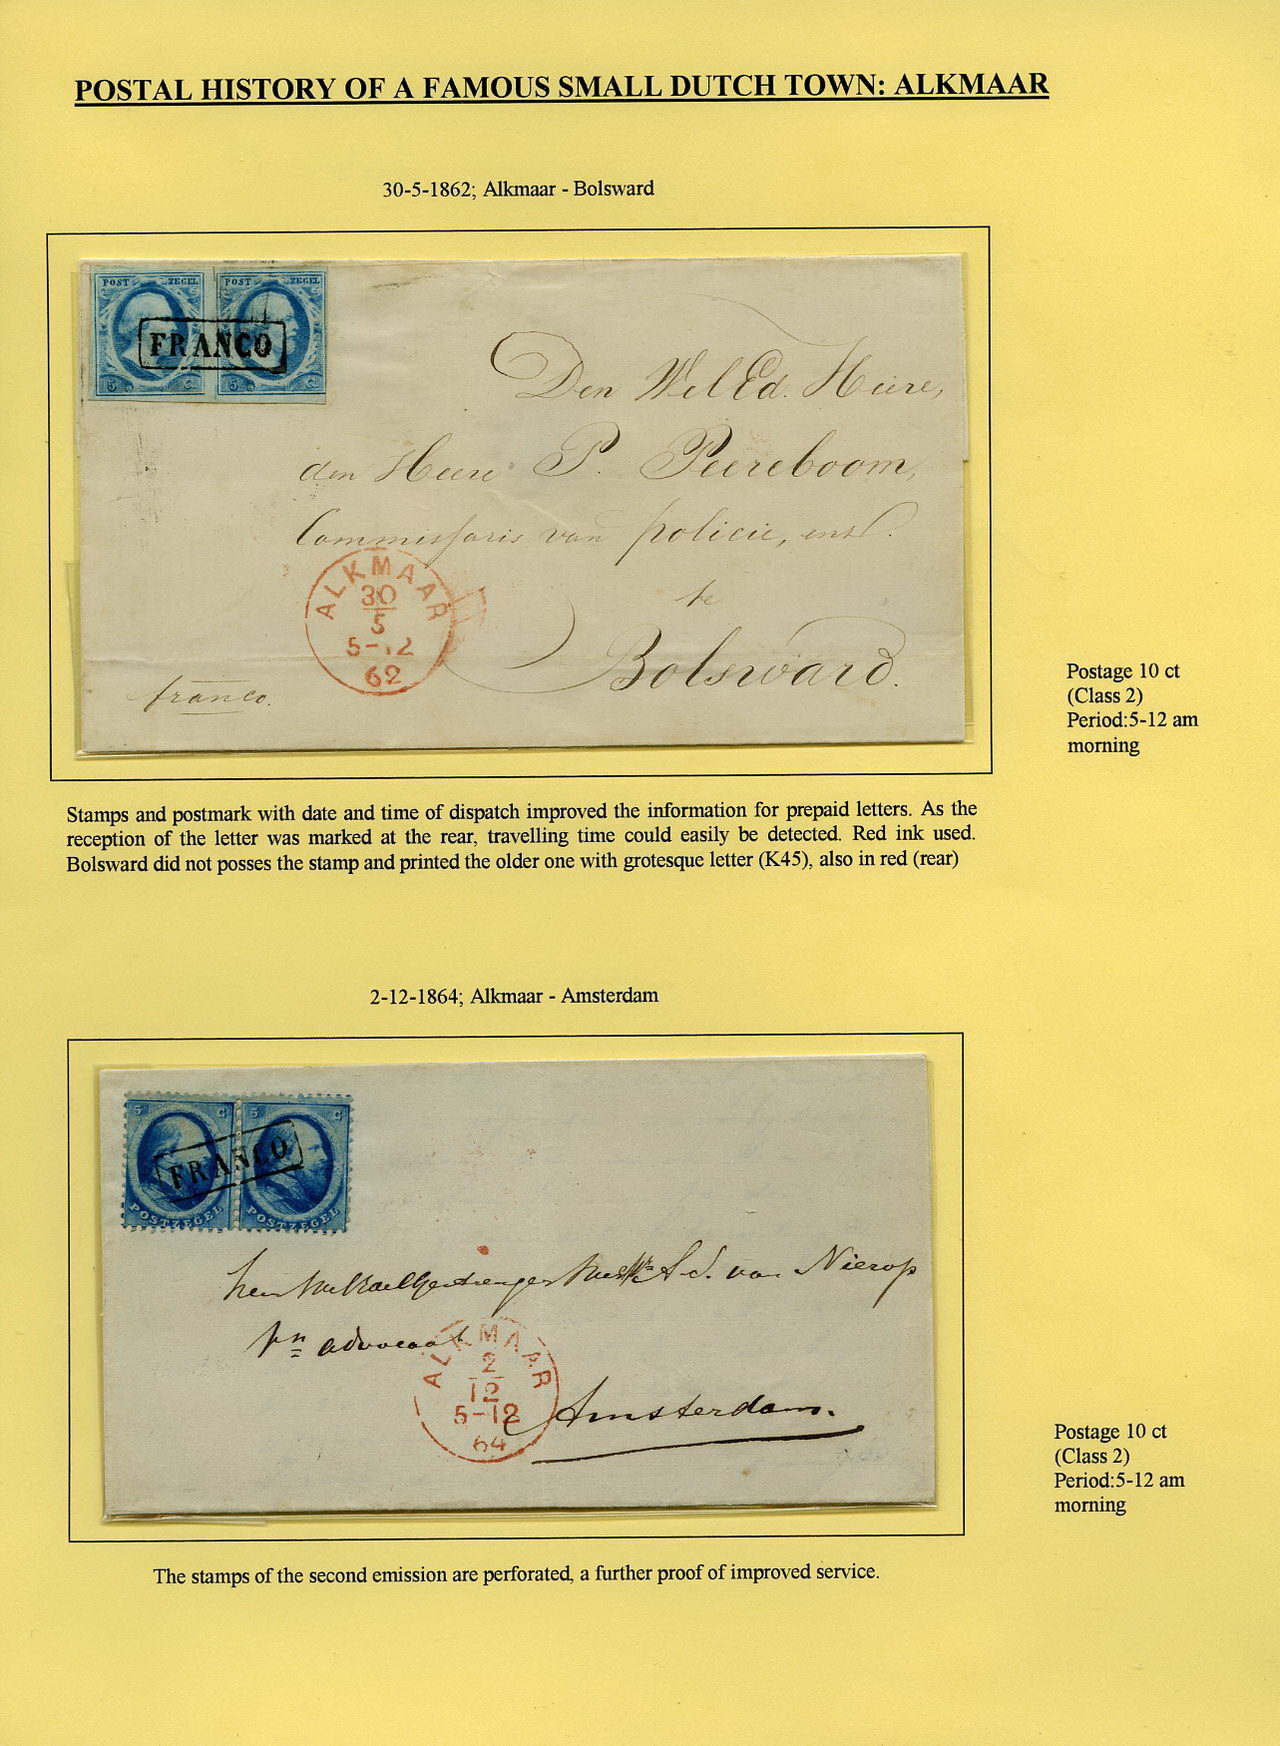 POSTAL HISTORY OF A FAMOUS SMALL DUTCH TOWN: ALKMAAR
30-5-1862; Alkmaar - Bolsward
POST ZEGEL POST ZEGEL
FRANCO
5 C 5 C
Den WelEd. Heere,
den Heere P. Peereboom,
Commissaris van policie,
te
Bolsward.
ALKMAAR
30
5
5-12
62
franco.
Postage 10 ct
(Class 2)
Period:5-12 am
morning
Stamps and postmark with date and time of dispatch improved the information for prepaid letters. As the
reception of the letter was marked at the rear, travelling time could easily be detected. Red ink used.
Bolsward did not posses the stamp and printed the older one with grotesque letter (K45), also in red (rear)
2-12-1864; Alkmaar - Amsterdam
5 C 5 C
FRANCO
POSTZEGEL POSTZEGEL
van Nierop
advocaat
ALKMAAR
2
12
5-12
64
Amsterdam.
Postage 10 ct
(Class 2)
Period:5-12 am
morning
The stamps of the second emission are perforated, a further proof of improved service.